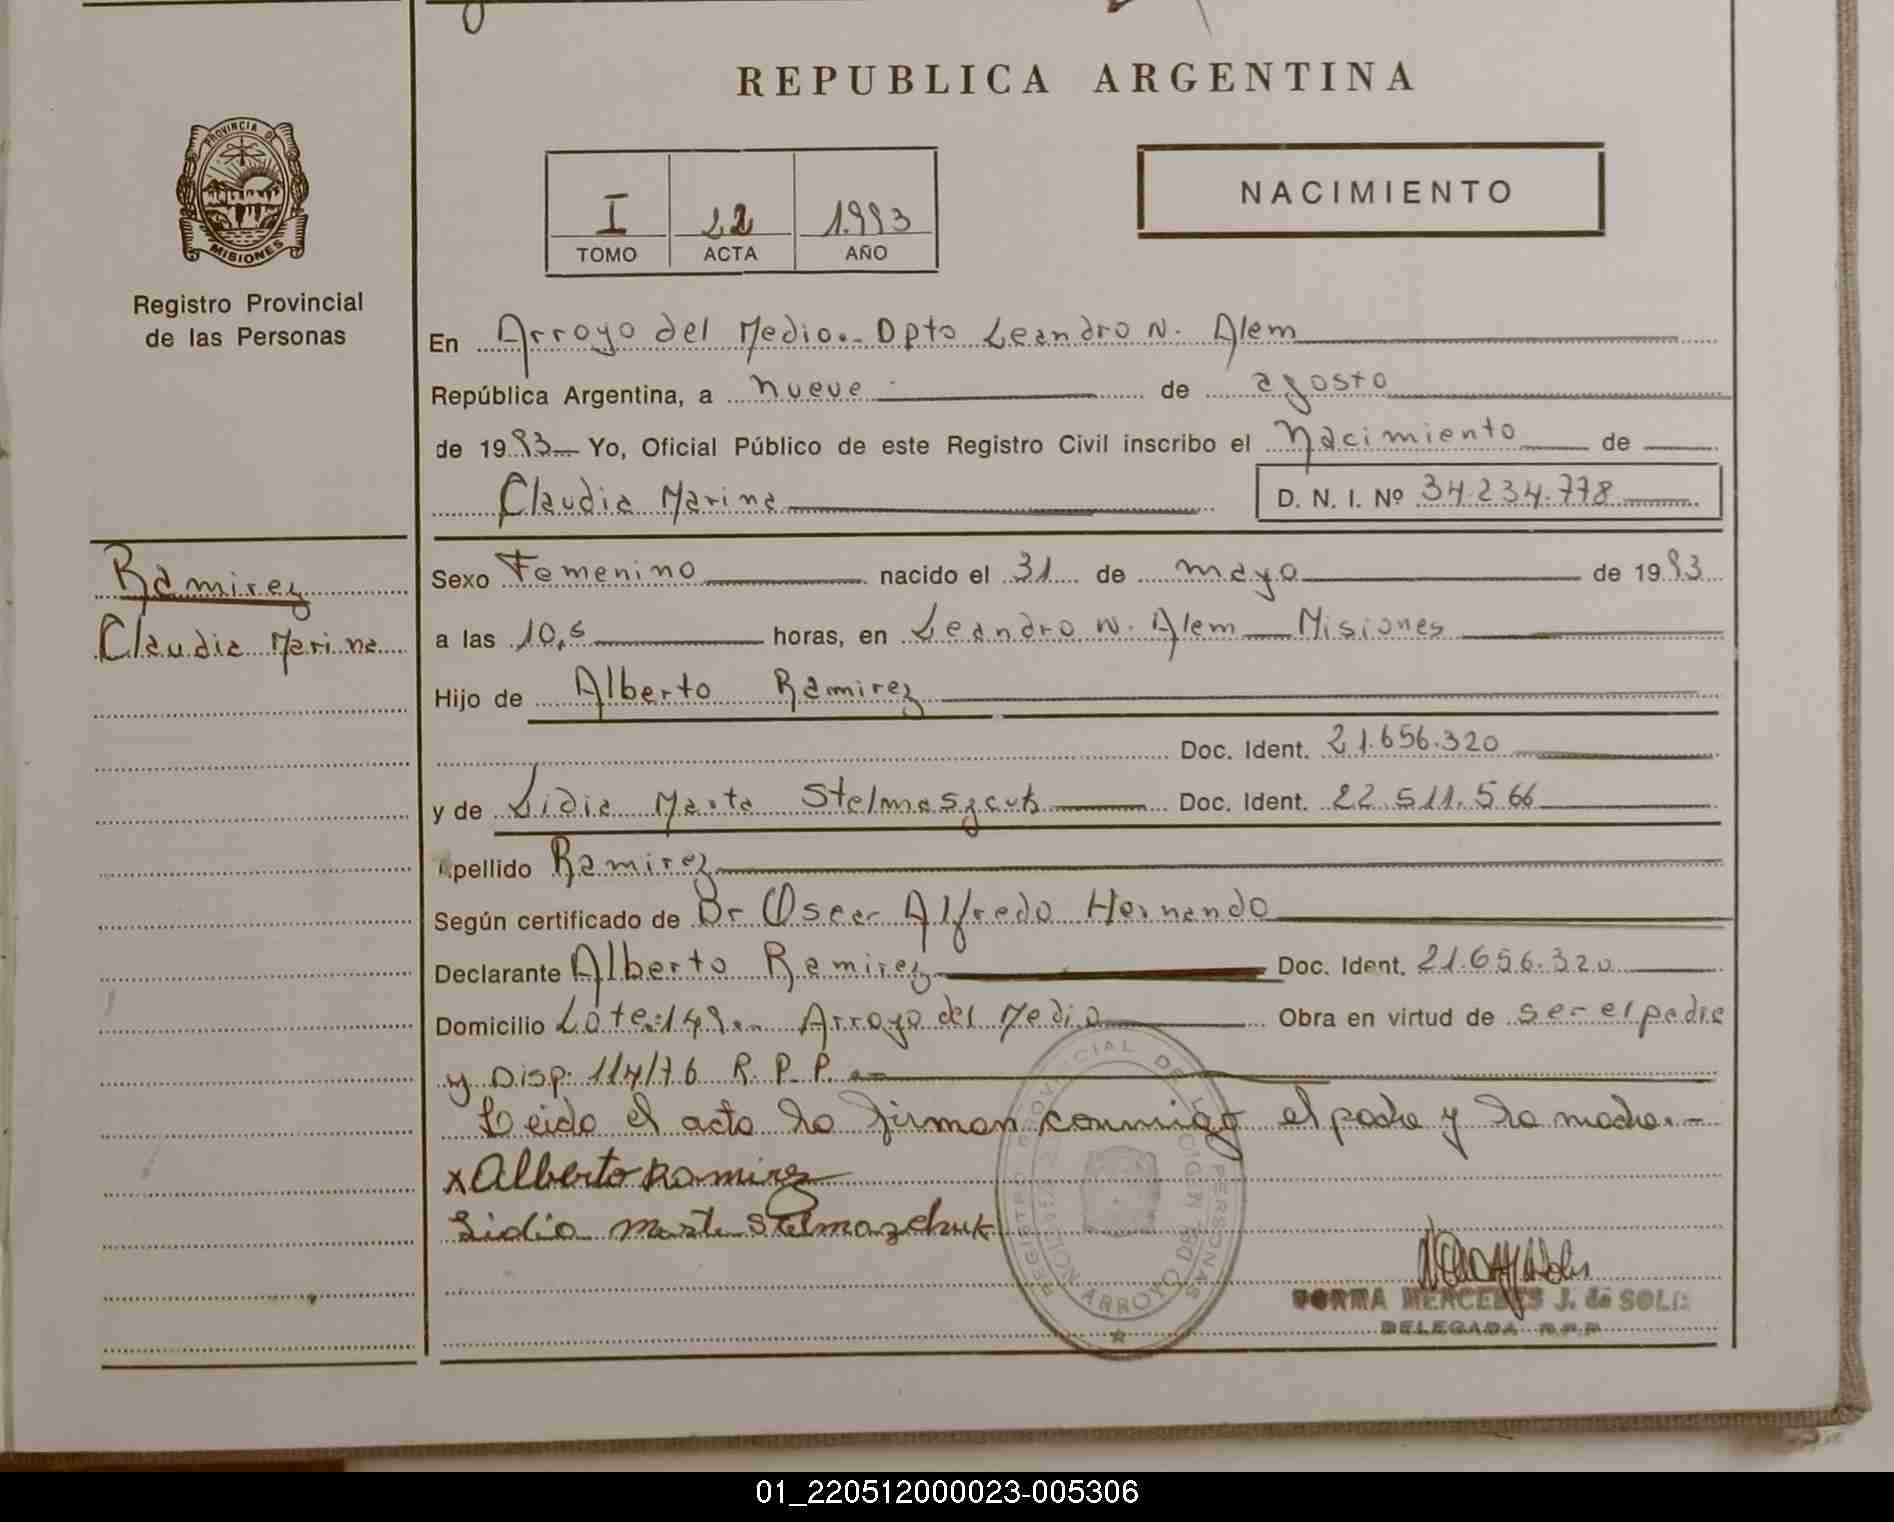 REPUBLICA ARGENTINA
PROVINCIA DE
MISIONES
Registro Provincial
de las Personas
I 22 1.993
TOMO ACTA AÑO
NACIMIENTO
En Arroyo del Medio.- Dpto Leandro N. Alem
República Argentina, a nueve de agosto
de 1993 Yo, Oficial Público de este Registro Civil inscribo el Nacimiento de
Claudia Marina D. N. I. Nº 34.234.778
Ramirez
Claudia Marina
Sexo Femenino nacido el 31 de mayo de 1993
a las 10,5 horas, en Leandro N. Alem Misiones
Hijo de Alberto Ramirez
Doc. Ident. 21.656.320
y de Lidia Marta Doc. Ident. 22.511.566
Apellido Ramirez
Según certificado de Dr Oscar Alfredo Hernando
Declarante Alberto Ramirez Doc. Ident. 21.656.320
Domicilio Lote: 149.. Arroyo del Medio Obra en virtud de ser el padre
y Disp. 114/76 R. P. P.
Leido el acta la firman conmigo el padre y la madre.-
x Alberto Ramirez
Lidia Marta Stelmazchuk
MERCEDES J. de
DELEGADA R.P.P.
01_220512000023-005306